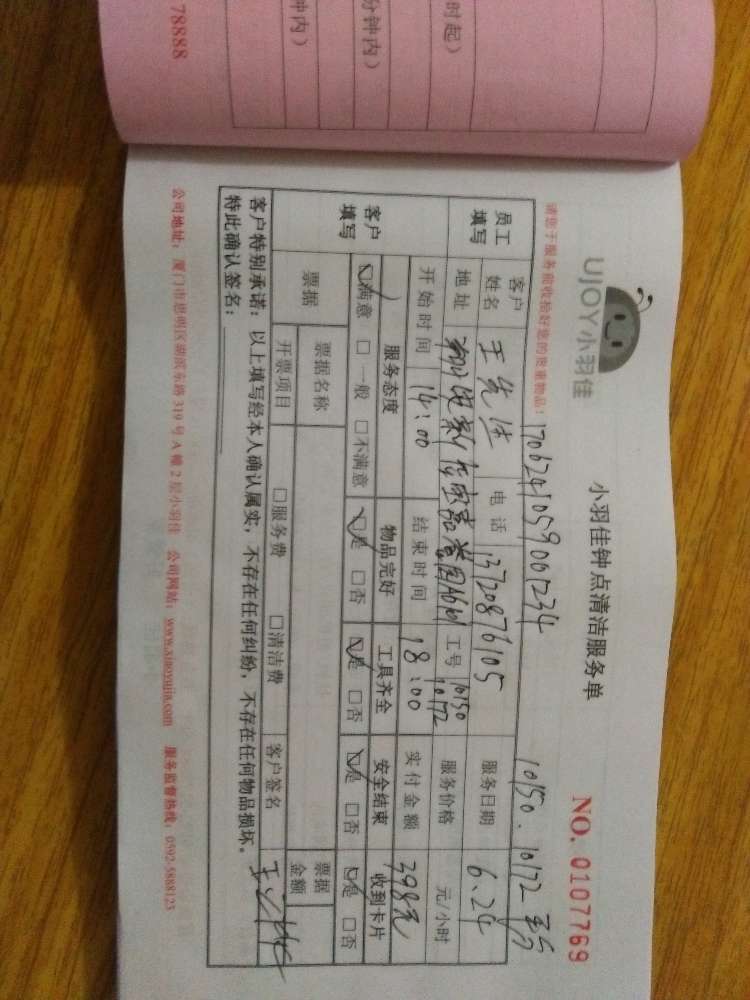 78888
时起）
分钟内）
钟内）
UJOY小羽佳
小羽佳钟点清洁服务单
NO. 0107769
请您于服务前收拾好您的贵重物品！
1706241059001234
10150. 10172
员工填写
客户姓名 王先生 电话 13720876105 服务日期 6.24
地址 工号 10150 10172 服务价格 元/小时
开始时间 14:00 结束时间 18:00 实付金额 398元
客户填写
服务态度 物品完好 工具齐全 安全结束 收到卡片
☑满意 □一般 □不满意 ☑是 □否 ☑是 □否 ☑是 □否 ☑是 □否
票据 票据名称 票据金额
开票项目 □服务费 □清洁费 客户签名
客户特别承诺：以上填写经本人确认属实，不存在任何纠纷，不存在任何物品损坏。
特此确认签名：
公司地址：厦门市思明区湖滨东路319号A幢2层小羽佳 公司网站：www.xiaoyujia.com 服务监督热线：0592-5888123